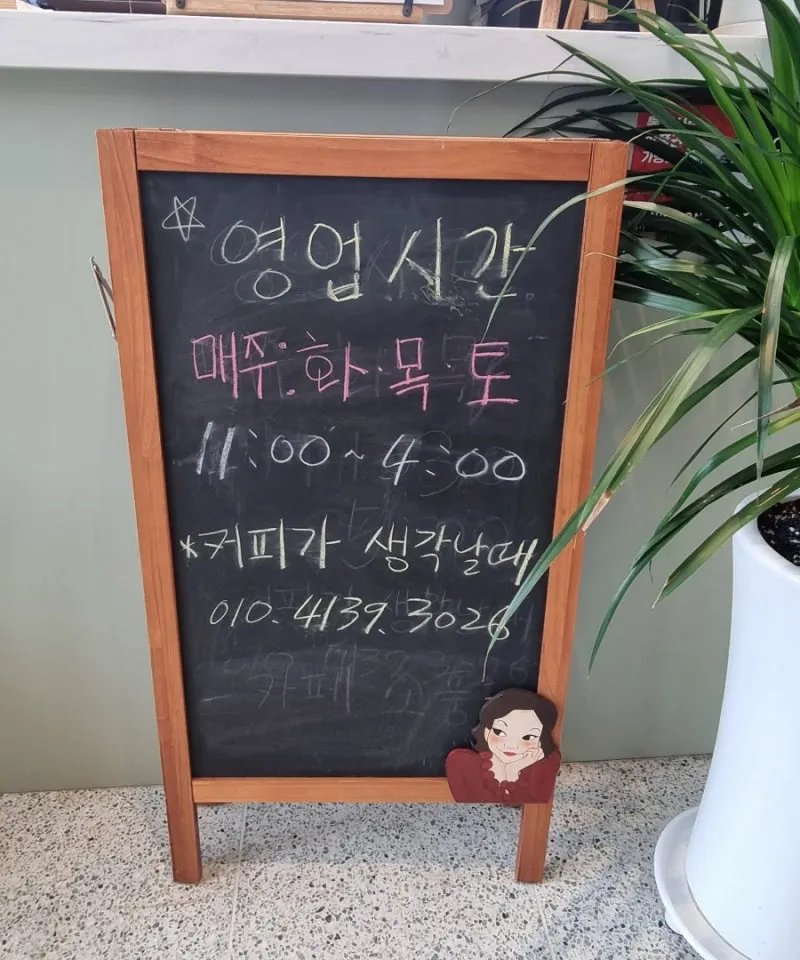 ☆ 영업시간
매주:화·목·토
11:00~4:00
*커피가 생각날때
010.4139.3026
카페 소풍